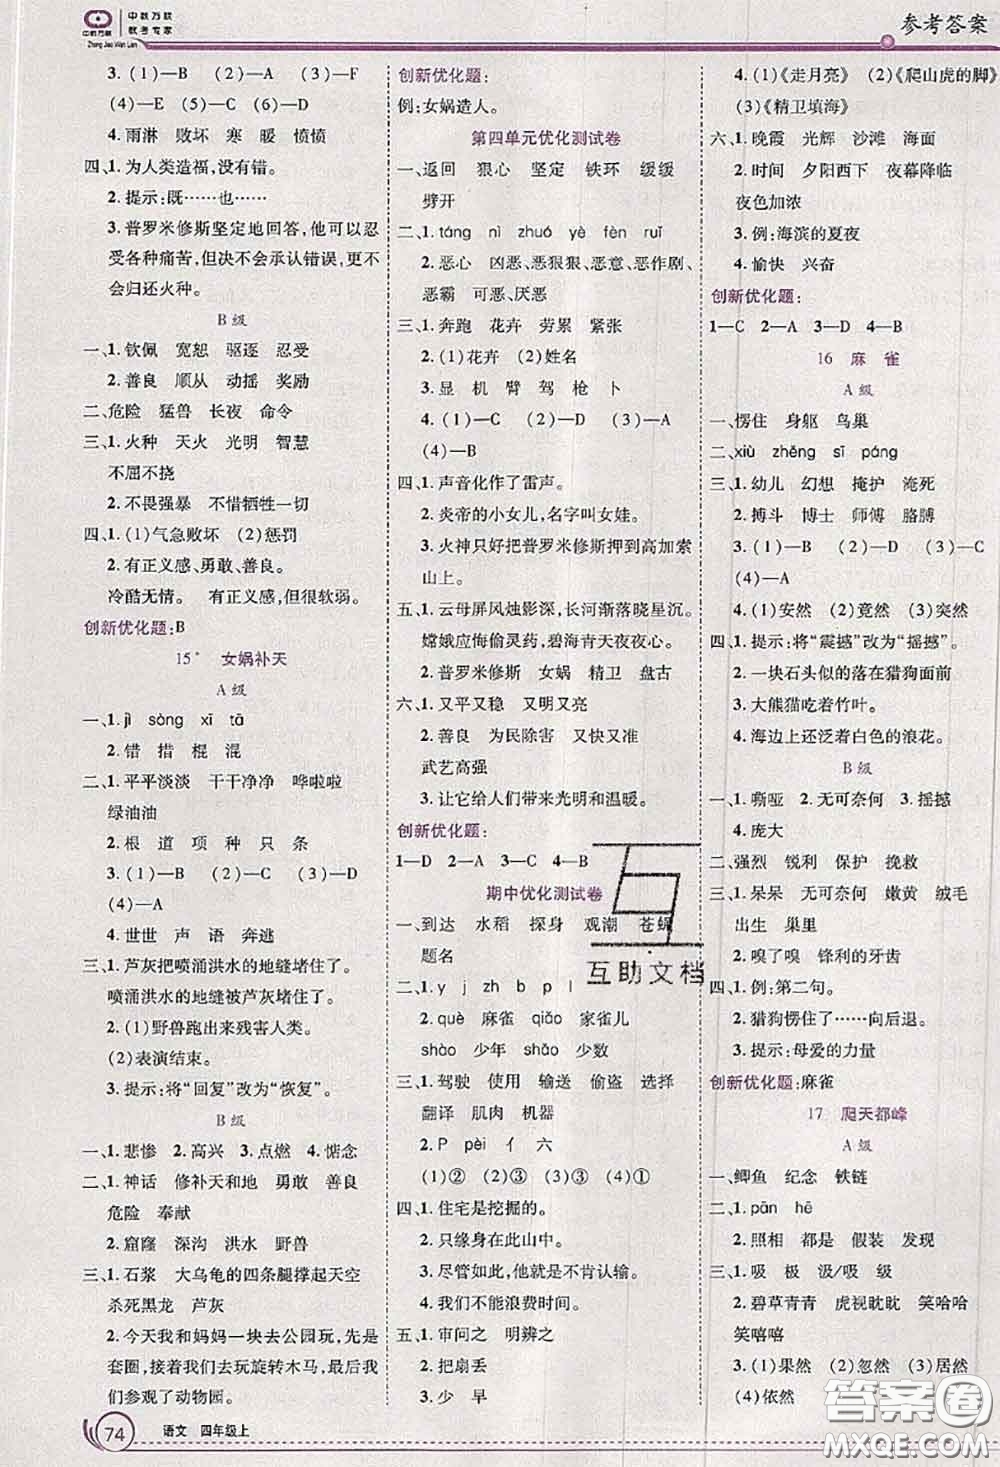 中教万联
教考专家
中教万联
Zhong Jiao Wan Lian
参考答案
3.(1)—B (2)—A (3)—F
(4)—E (5)—D (6)—C
4.雨淋 败坏 寒 暖 愤愤
四、1.为人类造福,没有错。
2.提示:既……也……
3.普罗米修斯坚定地回答,他可以忍
受各种痛苦,但决不会承认错误,更不
会归还火种。
B 级
一、1.钦佩 宽恕 驱逐 忍受
2.善良 顺从 动摇 奖励
二、危险 猛兽 长夜 命令
三、1.火种 天火 光明 智慧
不屈不挠
2.不畏强暴 不惜牺牲一切
四、1.(1)气急败坏 (2)惩罚
2.有正义感、勇敢、善良。
冷酷无情。 有正义感,但很软弱。
创新优化题:B
15* 女娲补天
A 级
一、1.jì sòng xī tā
2.错 措 棍 混
二、1.平平淡淡 干干净净 哗啦啦
绿油油
2.根 道 项 种 只 条
3.(1)—B (2)—C (3)—D
(4)—A
4.世世 声 语 奔逃
三、1.芦灰把喷涌洪水的地缝堵住了。
喷涌洪水的地缝被芦灰堵住了。
2.(1)野兽跑出来残害人类。
(2)表演结束。
3.提示:将“回复”改为“恢复”。
B 级
一、1.悲惨 2.高兴 3.点燃 4.惦念
二、1.神话 修补天和地 勇敢 善良
危险 奉献
2.窟窿 深沟 洪水 野兽
三、1.石浆 大乌龟的四条腿撑起天空
杀死黑龙 芦灰
2.今天我和妈妈一块去公园玩,先是
套圈,接着我们去玩旋转木马,最后我
们参观了动物园。
创新优化题:
例:女娲造人。
第四单元优化测试卷
一、返回 狠心 坚定 铁环 缓缓
劈开
二、1.táng nì zhuó yè fèn ruǐ
2.恶心 凶恶、恶狠狠、恶意、恶作剧、
恶霸 可恶、厌恶
三、1.奔跑 花卉 劳累 紧张
2.(1)花卉 (2)姓名
3.显 机 臂 驾 枪 卜
4.(1)—C (2)—D (3)—A
(4)—B
四、1.声音化作了雷声。
2.炎帝的小女儿,名字叫女娃。
3.火神只好把普罗米修斯押到高加索
山上。
五、1.云母屏风烛影深,长河渐落晓星沉。
嫦娥应悔偷灵药,碧海青天夜夜心。
2.普罗米修斯 女娲 精卫 盘古
六、1.又平又稳 又明又亮
2.善良 为民除害 又快又准
武艺高强
3.让它给人们带来光明和温暖。
创新优化题:
1—D 2—A 3—C 4—B
期中优化测试卷
一、到达 水稻 探身 观潮 苍蝇
题名
二、1.y j zh b p l
2.què 麻雀 qiǎo 家雀儿
shào 少年 shǎo 少数
三、1.驾驶 使用 输送 偷盗 选择
翻译 肌肉 机器
2.P pèi 亻 六
(1)② (2)③ (3)③ (4)①
四、1.住宅是挖掘的。
2.只缘身在此山中。
3.尽管如此,他还是不肯认输。
4.我们不能浪费时间。
五、1.审问之 明辨之
2.把扇丢
3.少 早
4.(1)《走月亮》 (2)《爬山虎的脚》
(3)《精卫填海》
六、1.晚霞 光辉 沙滩 海面
2.时间 夕阳西下 夜幕降临
夜色加浓
3.例:海滨的夏夜
4.愉快 兴奋
创新优化题:
1—C 2—A 3—D 4—B
16 麻 雀
A 级
一、愣住 身躯 鸟巢
二、xiù zhěng sī páng
三、1.幼儿 幻想 掩护 淹死
2.搏斗 博士 师傅 胳膊
3.(1)—B (2)—D (3)—C
(4)—A
4.(1)安然 (2)竟然 (3)突然
四、1.提示:将“震撼”改为“摇撼”。
2.一块石头似的落在猎狗面前
3.大熊猫吃着竹叶。
4.海边上还泛着白色的浪花。
B 级
一、1.嘶哑 2.无可奈何 3.摇撼
4.庞大
二、强烈 锐利 保护 挽救
三、1.呆呆 无可奈何 嫩黄 绒毛
出生 巢里
2.嗅了嗅 锋利的牙齿
四、1.例:第二句。
2.猎狗愣住了……向后退。
3.提示:母爱的力量
创新优化题:麻雀
17 爬天都峰
A 级
一、鲫鱼 纪念 铁链
二、1.pān hē
2.照相 都是 假装 发现
三、1.吸 极 汲/吸 级
2.碧草青青 虎视眈眈 笑哈哈
笑嘻嘻
3.(1)果然 (2)忽然 (3)居然
(4)依然
互助文档
答案圈
MXQE.COM
74 语文 四年级上